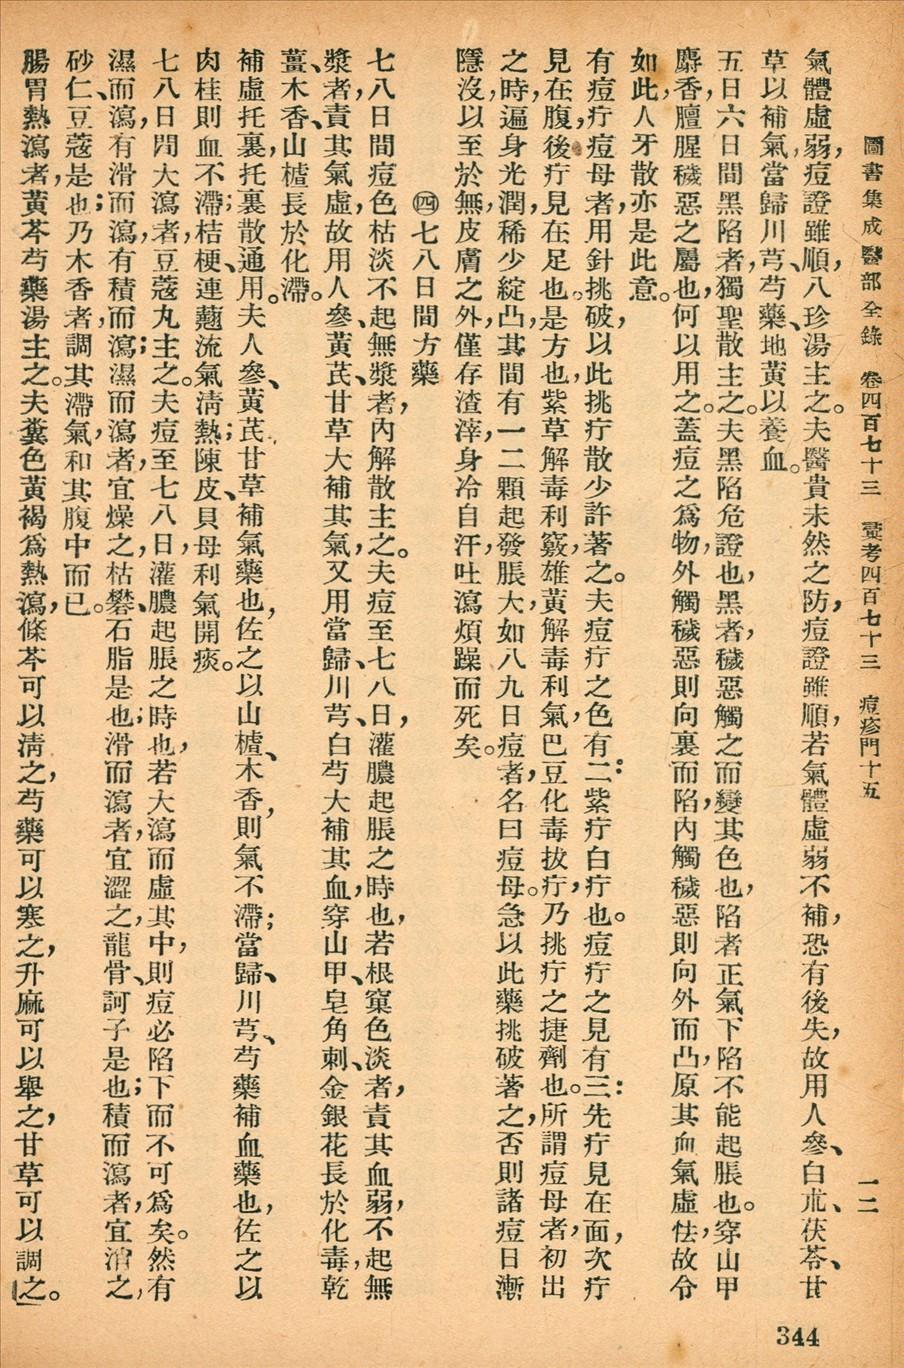 圖書集成醫部全錄　卷四百七十三　彙考四百七十三　痘疹門十五　一二
氣體虛弱，痘證雖順，八珍湯主之。夫醫貴未然之防，痘證雖順，若氣體虛弱不補，恐有後失，故用人參、白朮、茯苓、甘
草以補氣，當歸、川芎、芍藥、地黃以養血。
五日六日間黑陷者，獨聖散主之。夫黑陷危證也，黑者，穢惡觸之而變其色也，陷者正氣下陷不能起脹也。穿山甲
麝香，膻腥穢惡之屬也，何以用之。蓋痘之爲物，外觸穢惡則向裏而陷，內觸穢惡則向外而凸，原其血氣虛怯，故令
如此，人牙散亦是此意。
有痘疔痘母者，用針挑破，以此挑疔散少許著之。夫痘疔之色有二：紫疔白疔也。痘疔之見有三：先疔見在面，次疔
見在腹，後疔見在足也。是方也，紫草解毒利竅，雄黃解毒利氣，巴豆化毒拔疔，乃挑疔之捷劑也。所謂痘母者，初出
之時，遍身光潤，稀少綻凸，其間有一二顆起發脹大，如八九日痘者，名曰痘母。急以此藥挑破著之，否則諸痘日漸
隱沒，以至於無，皮膚之外，僅存渣滓，身冷自汗，吐瀉煩躁而死矣。
㊃七八日間方藥
七八日間痘色枯淡不起無漿者，內解散主之。夫痘至七八日，灌膿起脹之時也，若根窠色淡者，責其血弱，不起無
漿者，責其氣虛，故用人參、黃芪、甘草大補其氣，又用當歸、川芎、白芍大補其血，穿山甲、皂角刺、金銀花長於化毒，乾
薑、木香、山樝長於化滯。
補虛托裏，托裏散通用。夫人參、黃芪甘草補氣藥也，佐之以山樝、木香，則氣不滯；當歸、川芎、芍藥補血藥也，佐之以
肉桂則血不滯；桔梗、連翹流氣淸熱；陳皮、貝母利氣開痰。
七八日間大瀉者，豆蔻丸主之。夫痘至七八日，灌膿起脹之時也，若大瀉而虛其中，則痘必陷下而不可爲矣。然有
濕而瀉，有滑而瀉，有積而瀉；濕而瀉者，宜燥之，枯礬、石脂是也；滑而瀉者，宜澀之，龍骨、訶子是也；積而瀉者，宜消之，
砂仁、豆蔻是也；乃木香者，調其滯氣，和其腹中而已。
腸胃熱瀉者，黃芩芍藥湯主之。夫糞色黃褐爲熱瀉，條芩可以淸之，芍藥可以寒之，升麻可以舉之，甘草可以調之。
344